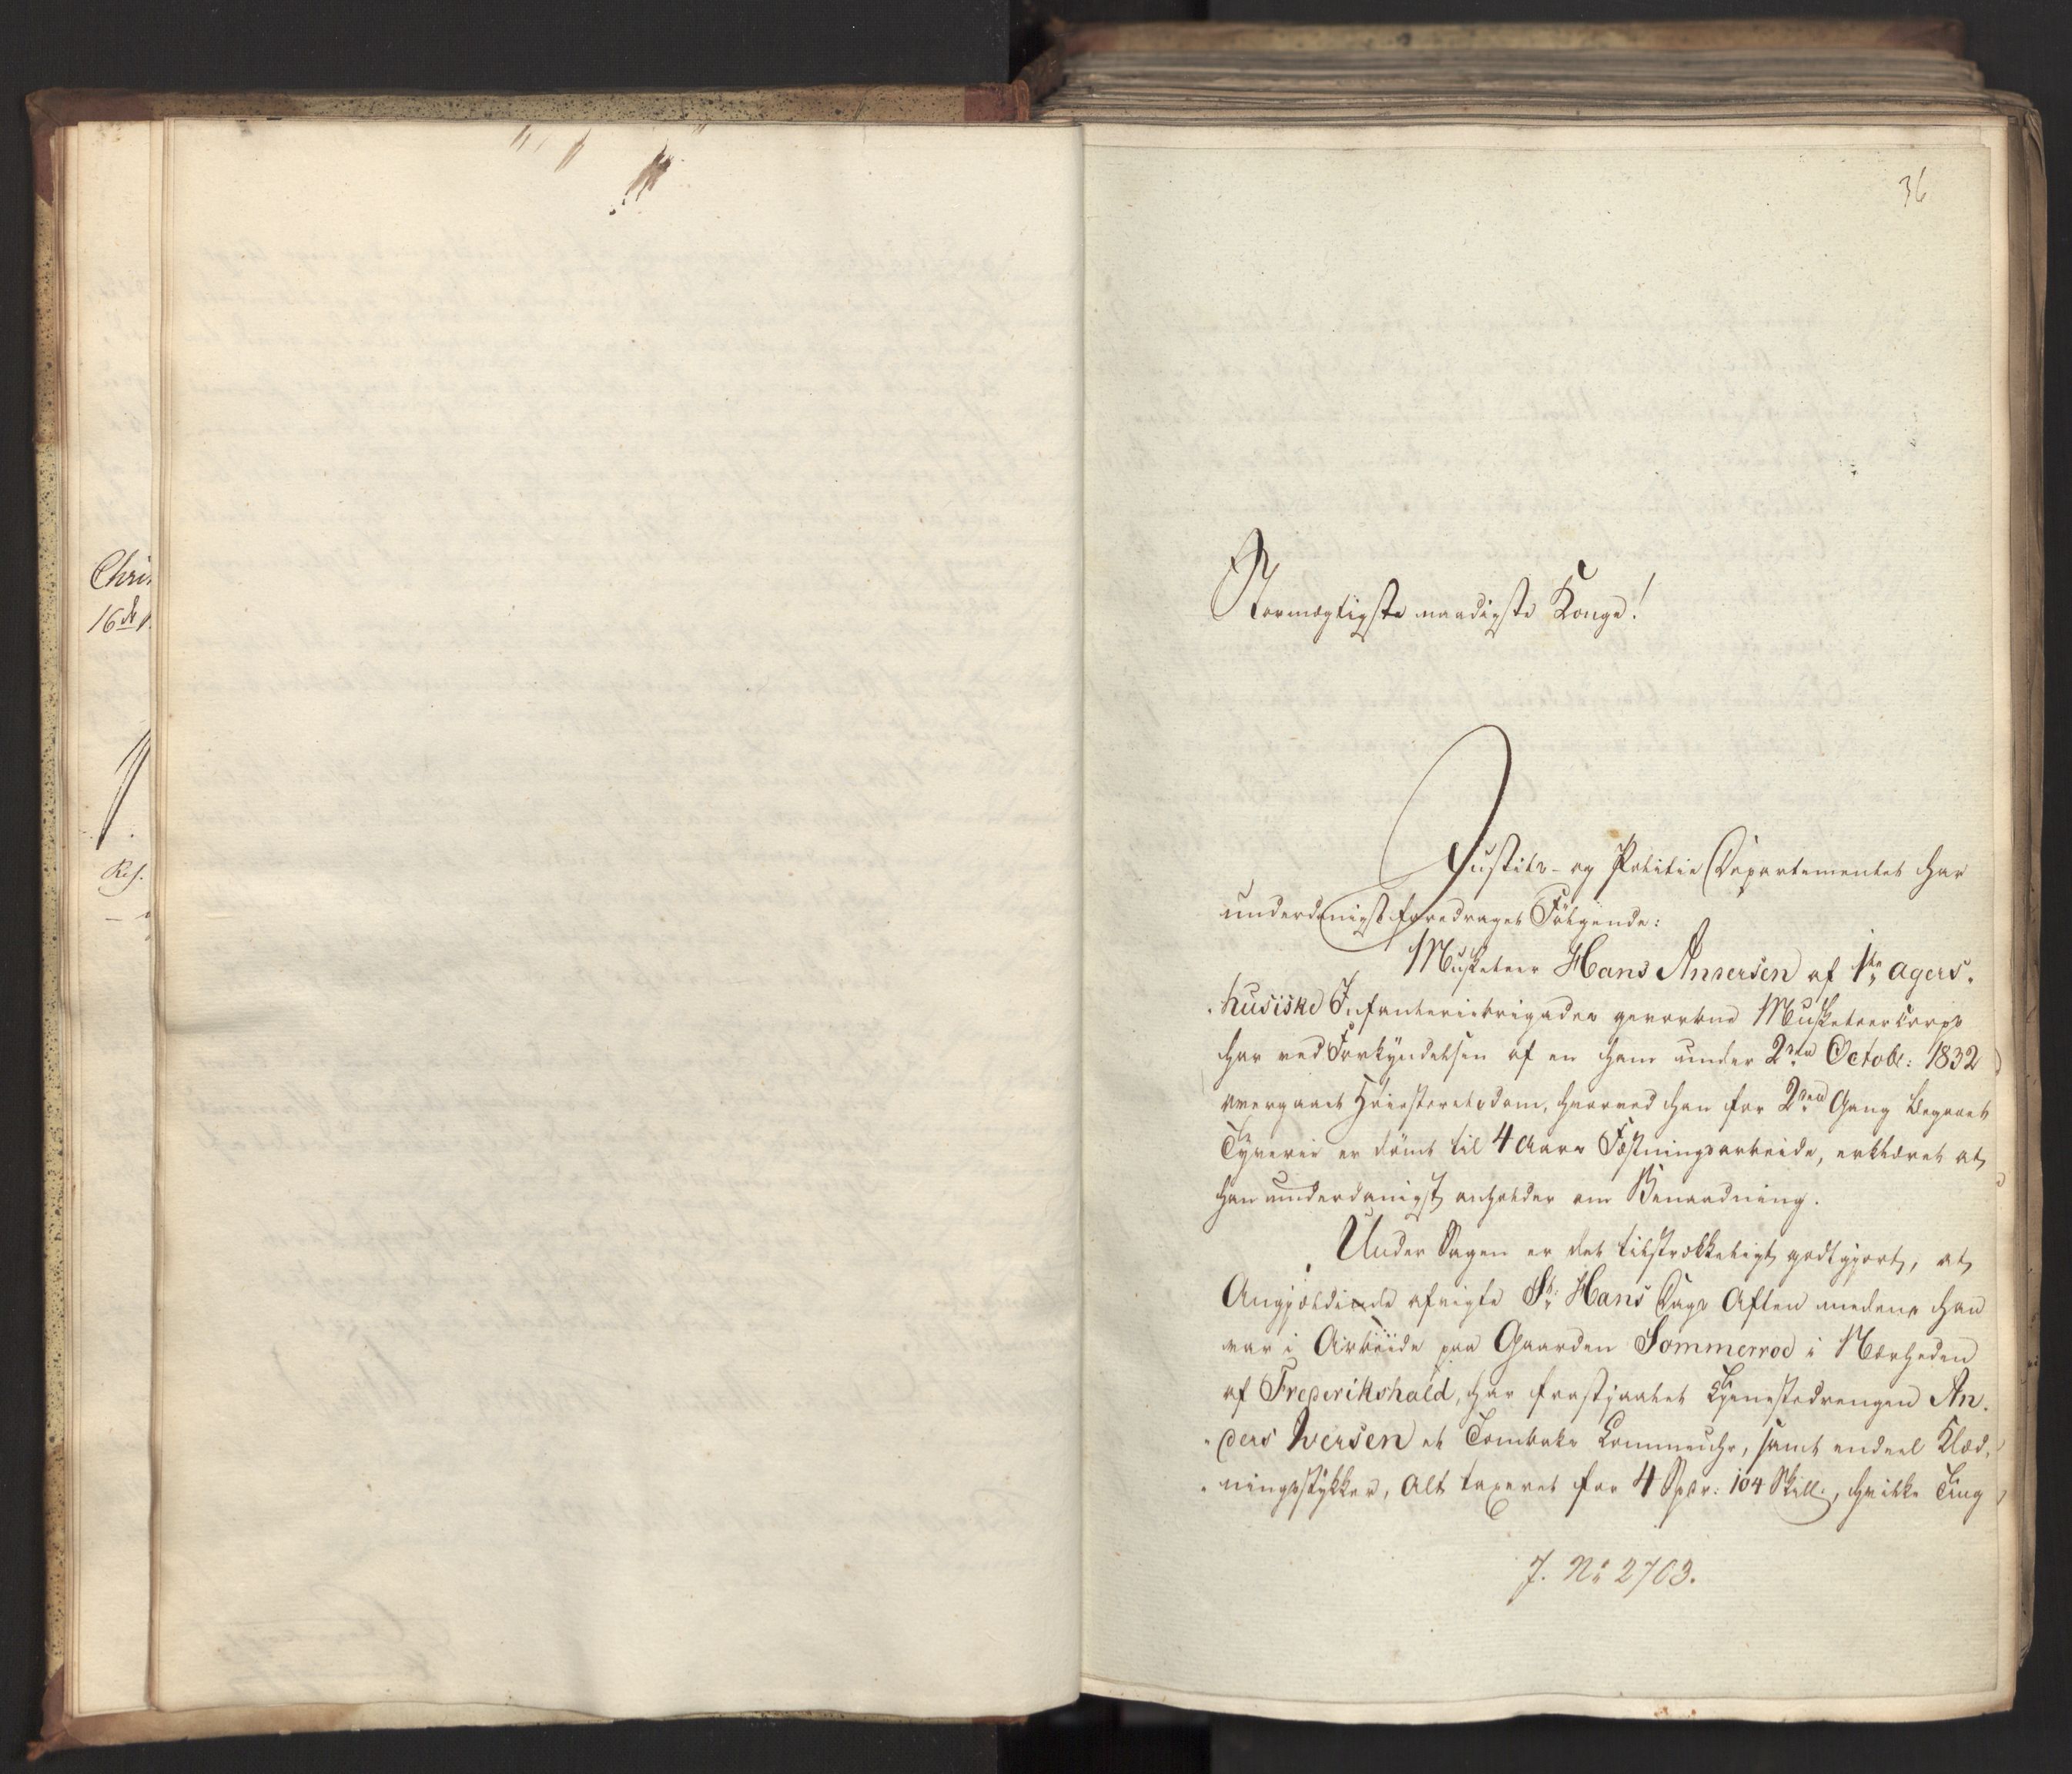 Chri
16de
Res.
36
Stormægtigste naadigste Konge!
Justits- og Politie Departementet har
underdanigst foredraget Følgende:
Musketeer Hans Andersen af 1ste agers-
husiske Infanteriebrigades gevorbne Musketeercorps
har ved Forkyndelsen af en ham under 2den Octobr: 1832
overgaaet Høiesteretsdom, hvorved han for 2den Gang begaaet
Tyverie er dømt til 4 Aars Fæstningsarbeide, erklæret at
han underdanigst anholder om Benaadning.
Under Sagen er det tilstrækkeligt godtgjort, at
Angjældende afvigte St: Hans Dags Aften medens han
var i Arbeide paa Gaarden Sommerroe i Nærheden
af Frederikshald, har frastjaalet Tjenestedrengen An-
ders Iversen et Tombaks Lommeuhr, samt endeel Klæd-
ningsstykker, Alt taxeret for 4 Spdr: 104 Skill:, hvilke Ting
J. No 2703.